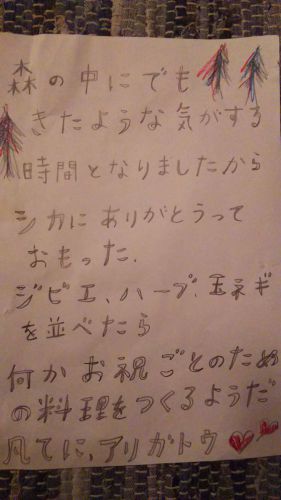 森の中にでも
きたような気がする
時間となりましたから
シカにありがとうって
おもった.
ジビエ、ハーブ、玉ネギ
を並べたら
何かお祝ごとのため
の料理をつくるようだ
凡てに、アリガトウ